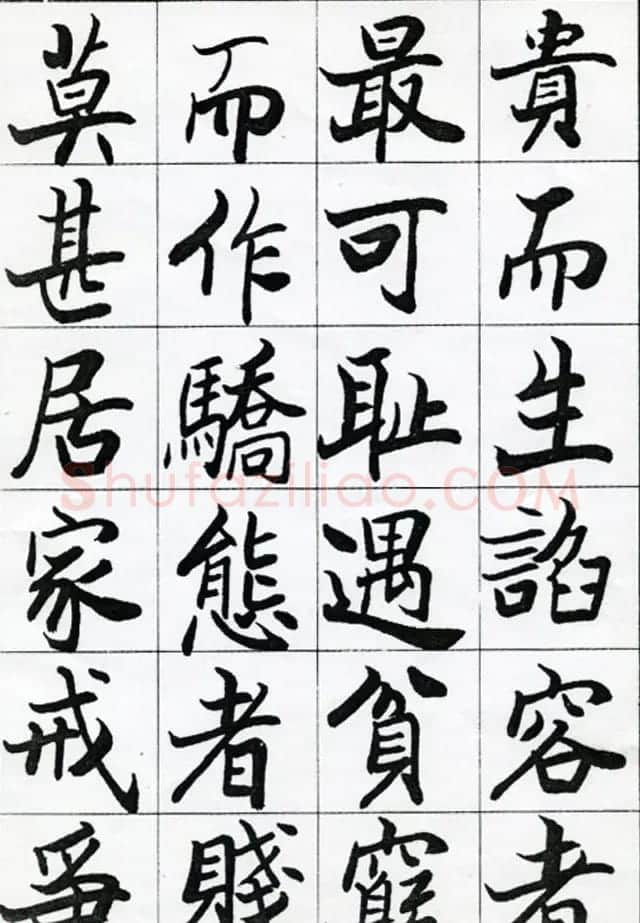 貴而生諂容者
最可恥遇貧窮
而作驕態者賤
莫甚居家戒爭
Shufaziliao.COM